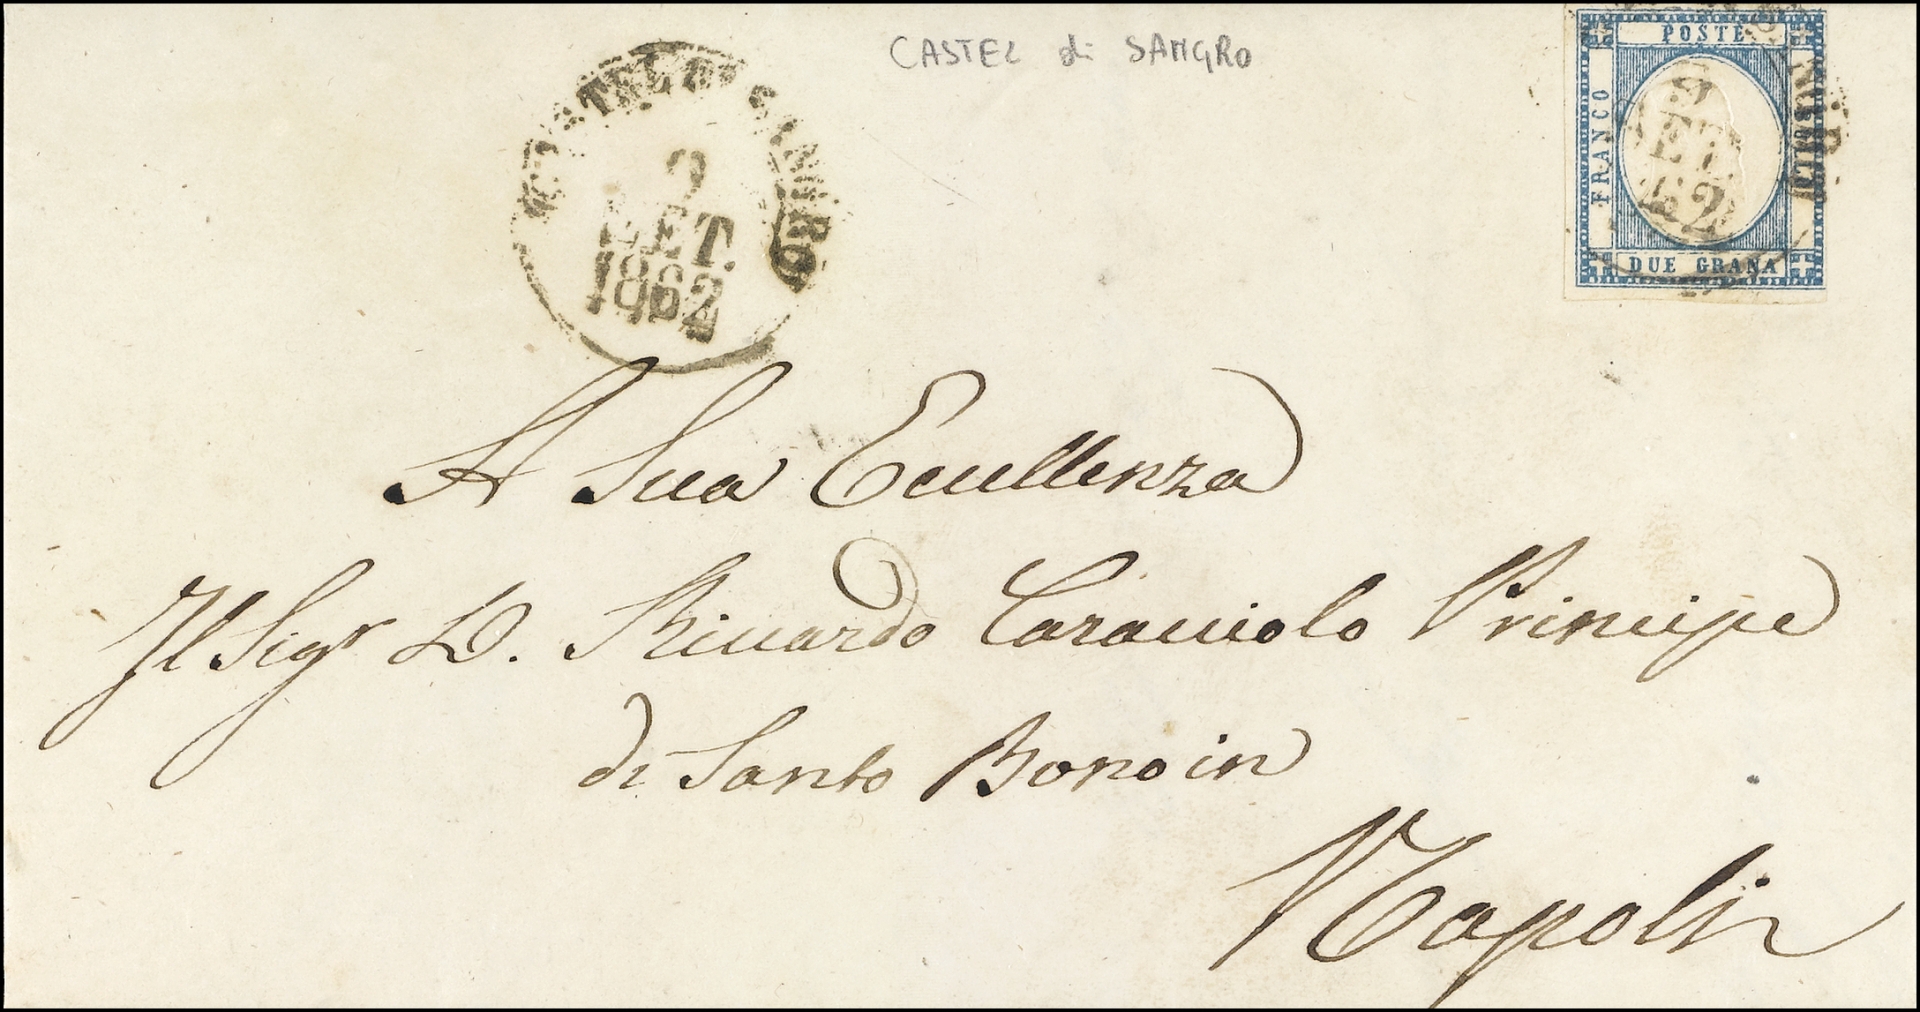 CASTEL di SANGRO
CASTEL DI SANGRO
2
SET.
1862
POSTE
FRANCO
BOLLO
DUE GRANA
2
SET.
62
A Sua Eccellenza
Il Sigr D. Riccardo Caracciolo Principe
di Santo Bono in
Napoli